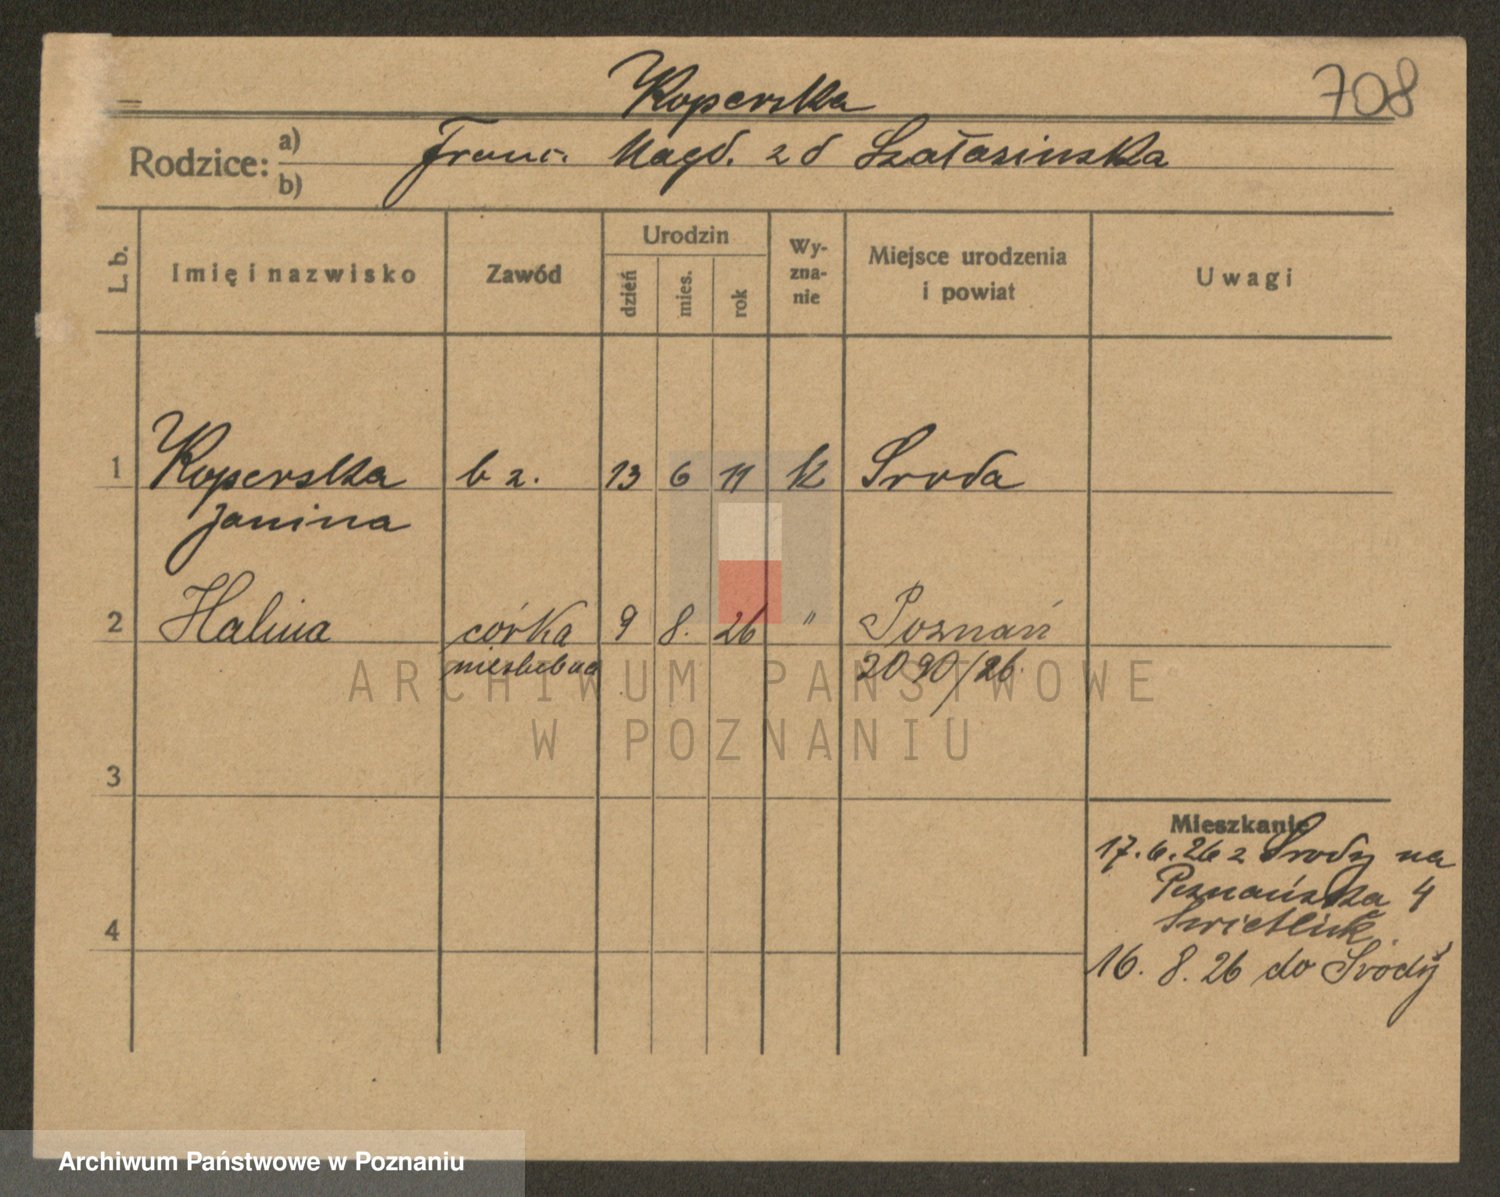 708
Koperska
Rodzice: a) b)
Franc. Magd. z d Szałasinska
L. b. Imię i nazwisko Zawód Urodzin dzień mies. rok Wy-zna-nie Miejsce urodzenia i powiat Uwagi
1 Koperska b z. 13 6 11 k Sroda
Janina
2 Halina córka 9 8. 26 " Poznań
nieślubna 2090/26.
3
Mieszkanie
17.6.26 z Srody na
Poznańska 4
4
16. 8. 26 do Srody
ARCHIWUM PAŃSTWOWE
W POZNANIU
Archiwum Państwowe w Poznaniu